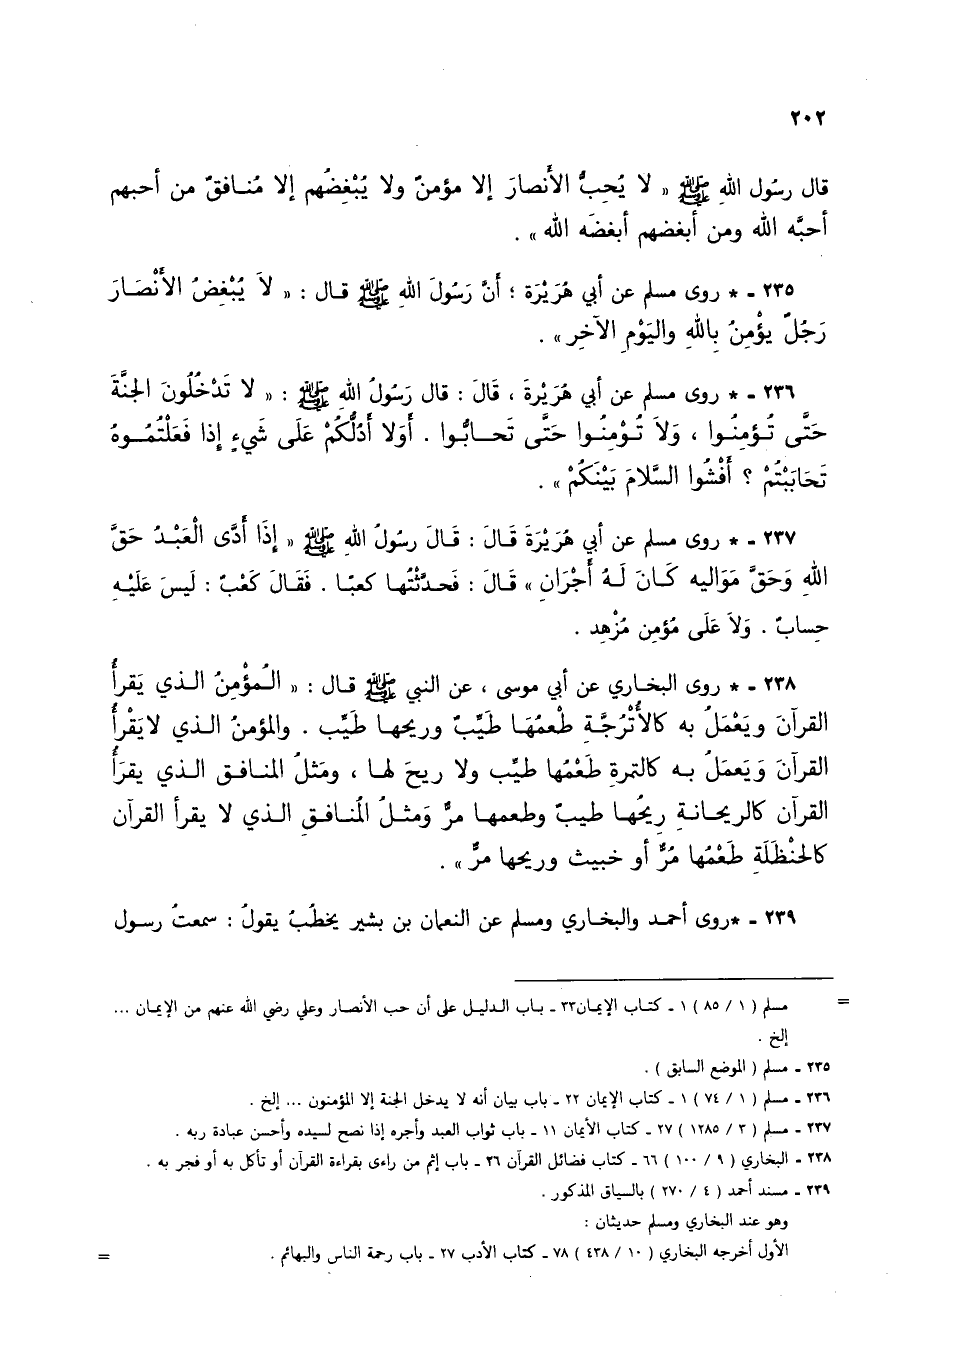 ٢٠٢
قال رسُول اللهِ ﷺ « لا يُحِبُّ الأَنصارَ إلا مؤمنٌ ولا يُبْغِضُهم إلا مُنـافقٌ من أحبهم
أحبَّه الله ومن أبغضهم أبغضَه الله » .
٢٣٥ - * روى مسلم عن أبي هُرَيْرَة ؛ أنَّ رَسُولَ اللهِ ﷺ قـال : « لاَ يُبْغِضُ الأَنْصَـارَ
رَجُلٌ يؤْمِنُ بِاللهِ واليَوْمِ الآخرِ » .
٢٣٦ - * روى مسلم عن أبي هُرَيْرةَ ، قَالَ : قال رَسُولُ اللهِ ﷺ : « لا تَدْخُلُونَ الجنَّةَ
حَتَّى تُـؤمِنُـوا ، وَلاَ تُـوْمِنُـوا حَتَّى تَحـابُّوا . أَوَلا أَدُلُّكُمْ عَلَى شَيءٍ إذا فَعَلْتُمُـوهُ
تَحَابَبْتُمْ ؟ أَفْشُوا السَّلامَ بَيْنَكُمْ » .
٢٣٧ - * روى مسلم عن أبي هُرَيْرَةَ قَـالَ : قَـالَ رسُولُ اللهِ ﷺ « إِذَا أَدَّى الْعَبْـدُ حَقَّ
اللهِ وَحَقَّ مَوَاليه كَـانَ لَـهُ أَجْرَانِ » قَـالَ : فَحـدَّثْتُهـا كعبًـا . فَقَـالَ كَعْبٌ : لَيسَ عَلَيْـهِ
حِسابٌ . وَلاَ عَلَى مُؤمِنٍ مُزْهِدٍ .
٢٣٨ - * روى البخـاري عن أبي موسى ، عن النبي ﷺ قـال : « الـمُؤْمِنُ الـذي يَقرأُ
القرآنَ ويَعْمَلُ به كالأُتْرُجَّـةِ طَعْمُهَـا طَيِّبٌ وريحهـا طَيِّب . والمؤمنُ الـذي لايَقْرأُ
القرآنَ وَيَعمَلُ بـه كالتمرةِ طَعْمُها طيِّب ولا ريحَ لهـا ، ومَثلُ المنـافـق الـذي يقرَأُ
القرآن كالريحانـةِ رِيحُهـا طيبٌ وطعمهـا مرٌّ وَمثـلُ الُمنـافـق الـذي لا يقرأ القرآن
كالحنْظَلَةِ طَعْمُها مُرٌّ أو خبيث وريحها مرٌّ » .
٢٣٩ - *روى أحمـد والبخـاري ومسلم عن النعمان بن بشير يخطُبُ يقولُ : سمعتُ رسـول
= مسلم ( ١ / ٨٥ ) ١ ـ كتـاب الإيمـان٣٣ ـ بـاب الـدليـل على أن حب الأنصـار وعلي رضي الله عنهم من الإيمـان ...
إلخ .
٢٣٥ - مسلم ( الموضع السابق ) .
٢٣٦ - مسلم ( ١ / ٧٤ ) ١ ـ كتاب الإيمان ٢٢ ـ باب بيان أنه لا يدخل الجنة إلا المؤمنون ... إلخ .
٢٣٧ - مسلم ( ٣ / ١٢٨٥ ) ٢٧ ـ كتاب الأيمان ١١ ـ باب ثواب العبد وأجره إذا نصح لسيده وأحسن عبادة ربه .
٢٣٨ - البخاري ( ٩ / ١٠٠ ) ٦٦ ـ كتاب فضائل القرآن ٣٦ ـ باب إثم من راءى بقراءة القرآن أو تأكل به أو فجر به .
٢٣٩ - مسند أحمد ( ٤ / ٢٧٠ ) بالسياق المذكور .
وهو عند البخاري ومسلم حديثان :
الأول أخرجه البخاري ( ١٠ / ٤٣٨ ) ٧٨ ـ كتاب الأدب ٢٧ ـ باب رحمة الناس والبهائم . =